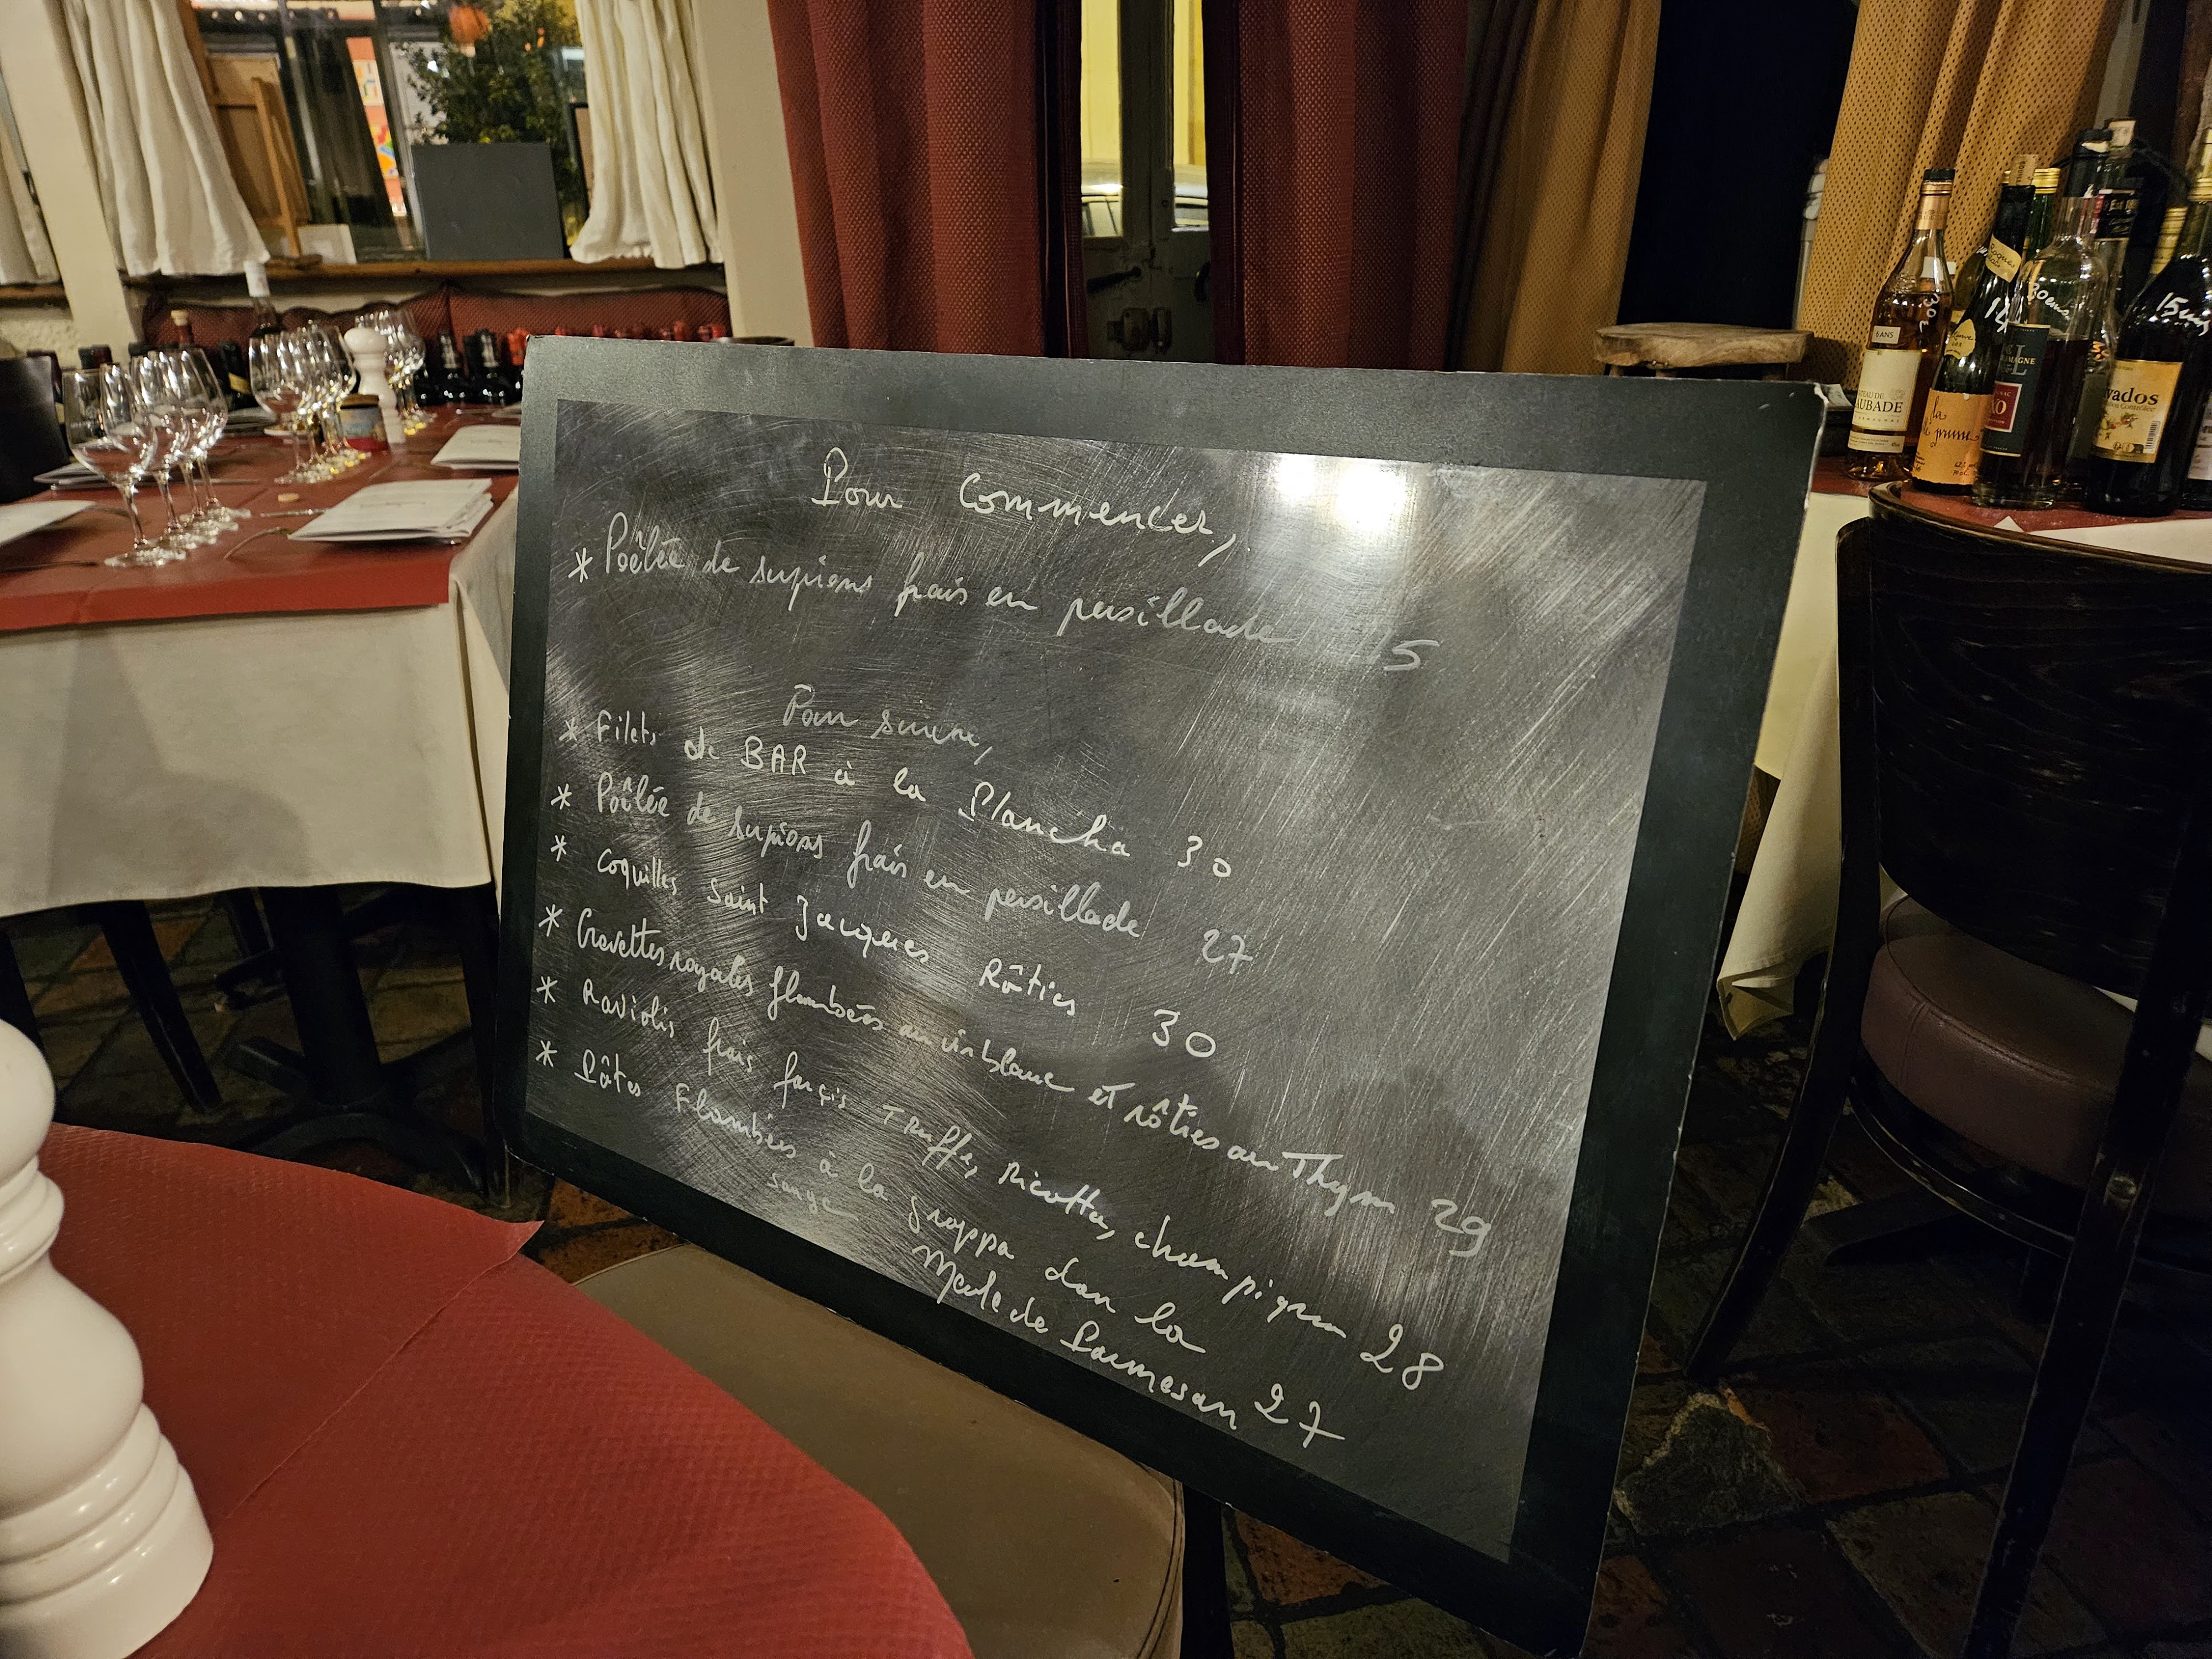 Pour commencer,
* Poêlée de supions frais en persillade 15
Pour suivre,
* Filets de BAR à la Plancha 30
* Poêlée de supions frais en persillade 27
* Coquilles Saint Jacques Rôties 30
* Crevettes royales flambées au vin blanc et rôties au Thym 29
* Raviolis frais farçis Truffe, ricotta, champignon 28
* Pâtes Flambées à la grappa dan la
sauge Meule de Parmesan 27
6 ANS
AUBADE
la prune
XO
vados
15